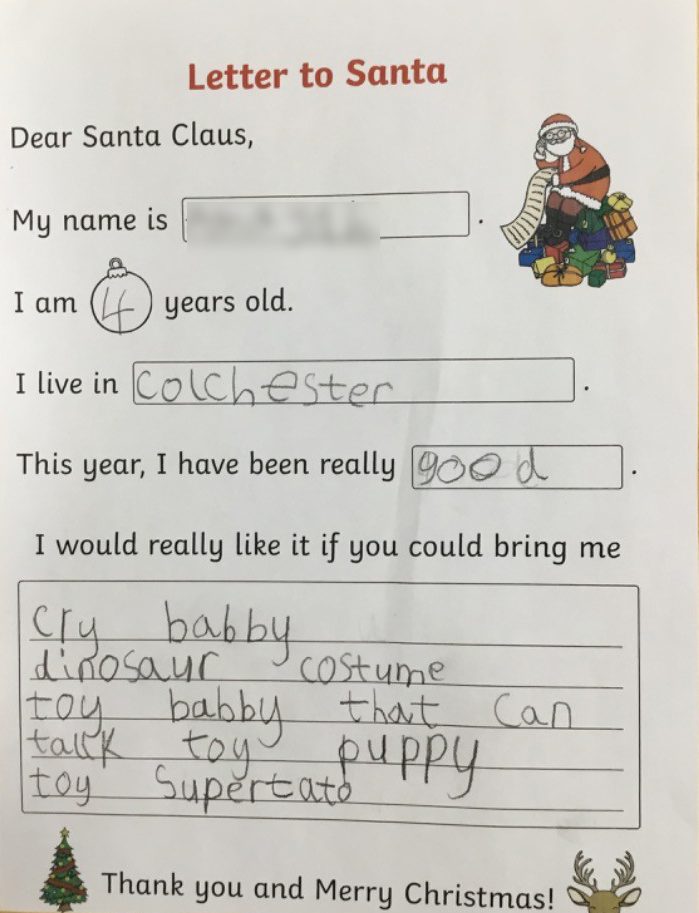 Letter to Santa
Dear Santa Claus,
My name is .
I am 4 years old.
I live in Colchester .
This year, I have been really good .
I would really like it if you could bring me
cry babby
dinosaur costume
toy babby that can
tallk toy puppy
toy Supertato
Thank you and Merry Christmas!